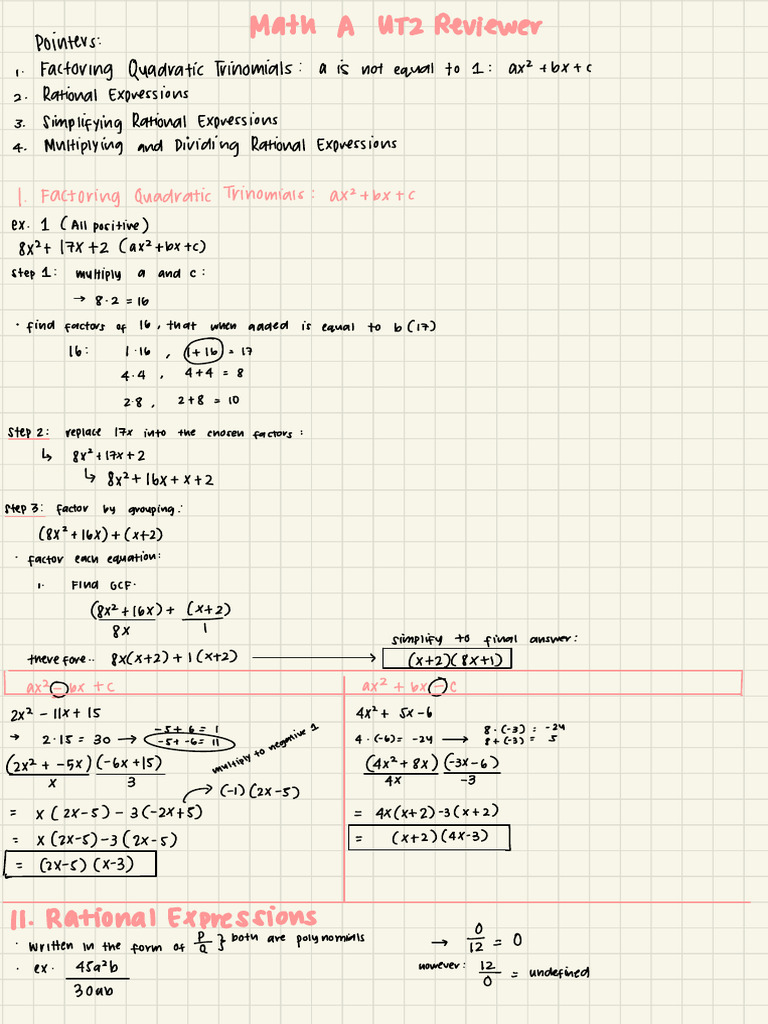 Math A UT2 Reviewer
Pointers:
1. Factoring Quadratic Trinomials: a is not equal to 1: ax² + bx + c
2. Rational Expressions
3. Simplifying Rational Expressions
4. Multiplying and Dividing Rational Expressions
1. Factoring Quadratic Trinomials: ax² + bx + c
ex. 1 (All positive)
8x² + 17x + 2 (ax² + bx + c)
Step 1: multiply a and c:
→ 8 · 2 = 16
· find factors of 16, that when added is equal to b (17)
16: 1 · 16 , 1 + 16 = 17
4 · 4 , 4 + 4 = 8
2 · 8 , 2 + 8 = 10
Step 2: replace 17x into the chosen factors:
↳ 8x² + 17x + 2
↳ 8x² + 16x + x + 2
Step 3: factor by grouping:
(8x² + 16x) + (x + 2)
· factor each equation:
1. Find GCF.
(8x² + 16x) + (x + 2)
8x 1
therefore.. 8x(x + 2) + 1(x + 2) →
simplify to final answer:
(x + 2)(8x + 1)
ax² - bx + c
2x² - 11x + 15
→ 2 · 15 = 30 →
-5 + 6 = 1
-5 + -6 = 11
(2x² + -5x) (-6x + 15)
x 3
multiply to negative 1
(-1)(2x - 5)
= x(2x - 5) - 3(-2x + 5)
= x(2x - 5) - 3(2x - 5)
= (2x - 5)(x - 3)
ax² + bx - c
4x² + 5x - 6
4 · (-6) = -24 →
8 · (-3) = -24
8 + (-3) = 5
(4x² + 8x) (-3x - 6)
4x -3
= 4x(x + 2) - 3(x + 2)
= (x + 2)(4x - 3)
II. Rational Expressions
· written in the form of P/Q } both are polynomials
· ex. 45a²b
30ab
→ 0/12 = 0
however: 12/0 = undefined